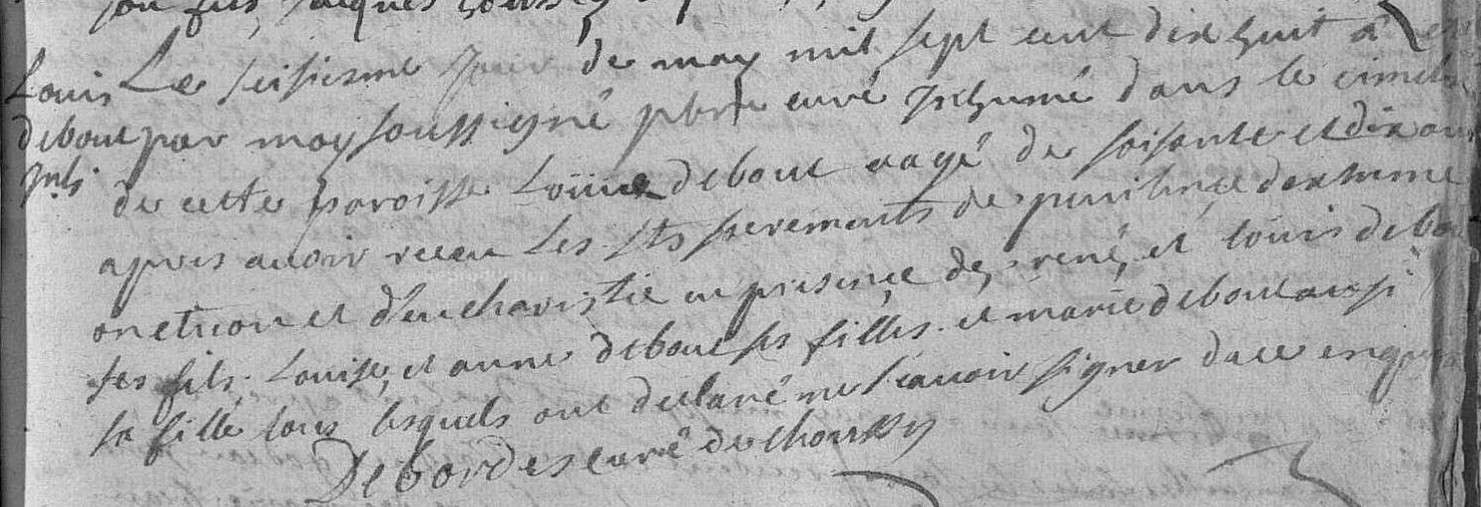 son fils, Jacques
Louis Le seisiesme jour de may mil sept cent dix huit a
debout par moy soussigné pbre curé Inhumé dans le cimet
de cette paroisse Loüis debout aagé de soisante et dix ans
apres avoir receu les sts serements de penitence dextreme
onction et d'eucharistie en presence de rené, et louis debou
ses fils. Louise, et anne debout ses filles. et marie debout aussi
sa fille tous lesquels ont declaré ne scavoir signer de ce enquis
Debordes curé de choussy